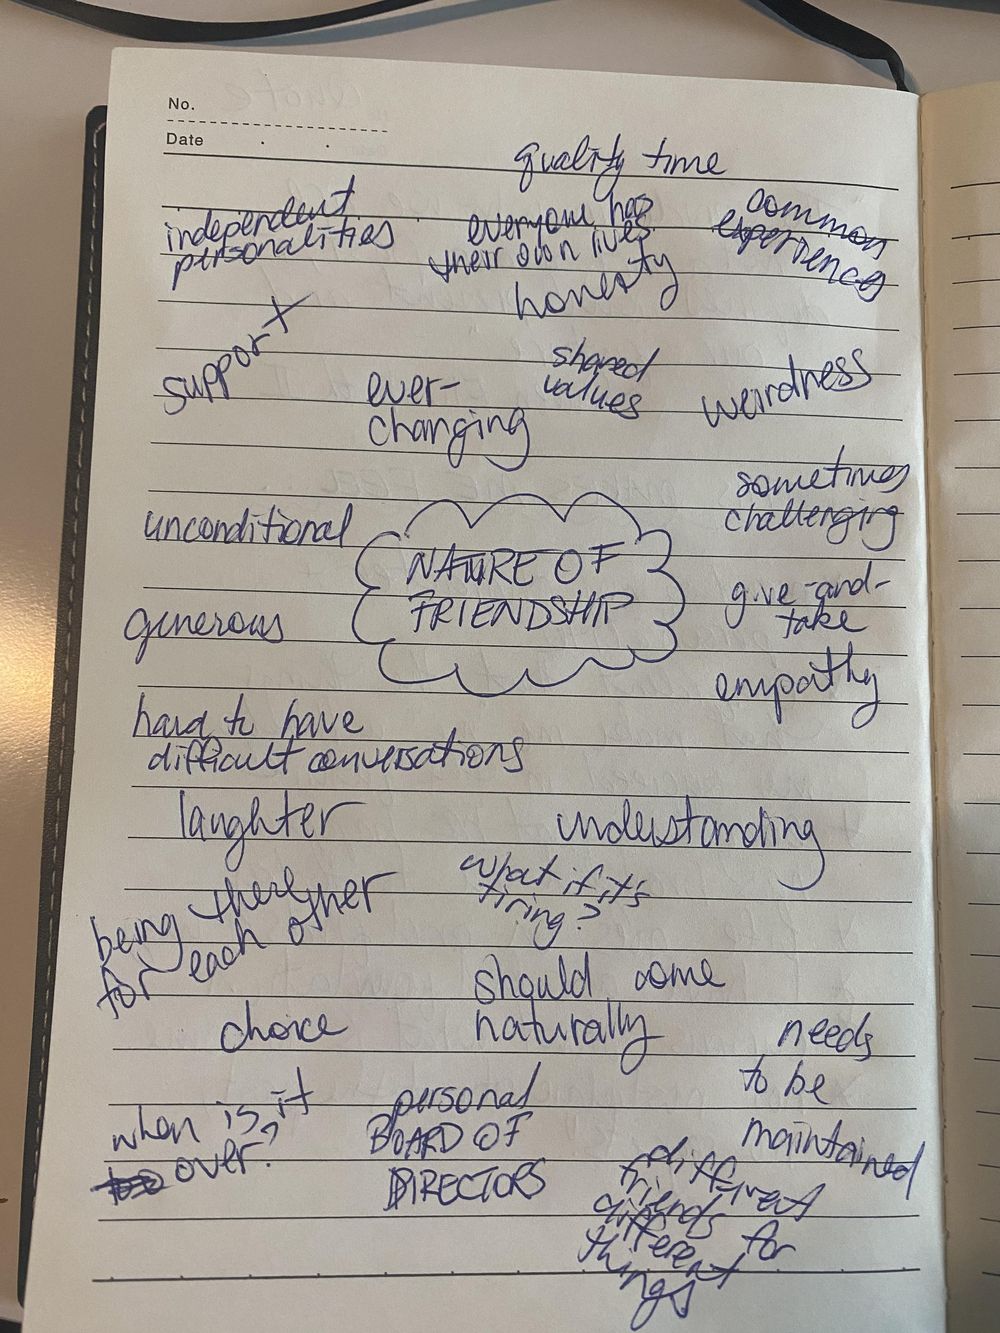 No.
Date
quality time
independent
personalities
everyone has
their own lives
common
experiences
honesty
support
ever-
changing
shared
values
weirdness
sometimes
challenging
unconditional
NATURE OF
FRIENDSHIP
give-and-
take
generous
empathy
hard to have
difficult conversations
laughter
understanding
being there
for each other
what if it's
tiring?
should come
naturally
choice
needs
to be
maintained
when is it
over?
personal
BOARD OF
DIRECTORS
different
friends for
different
things